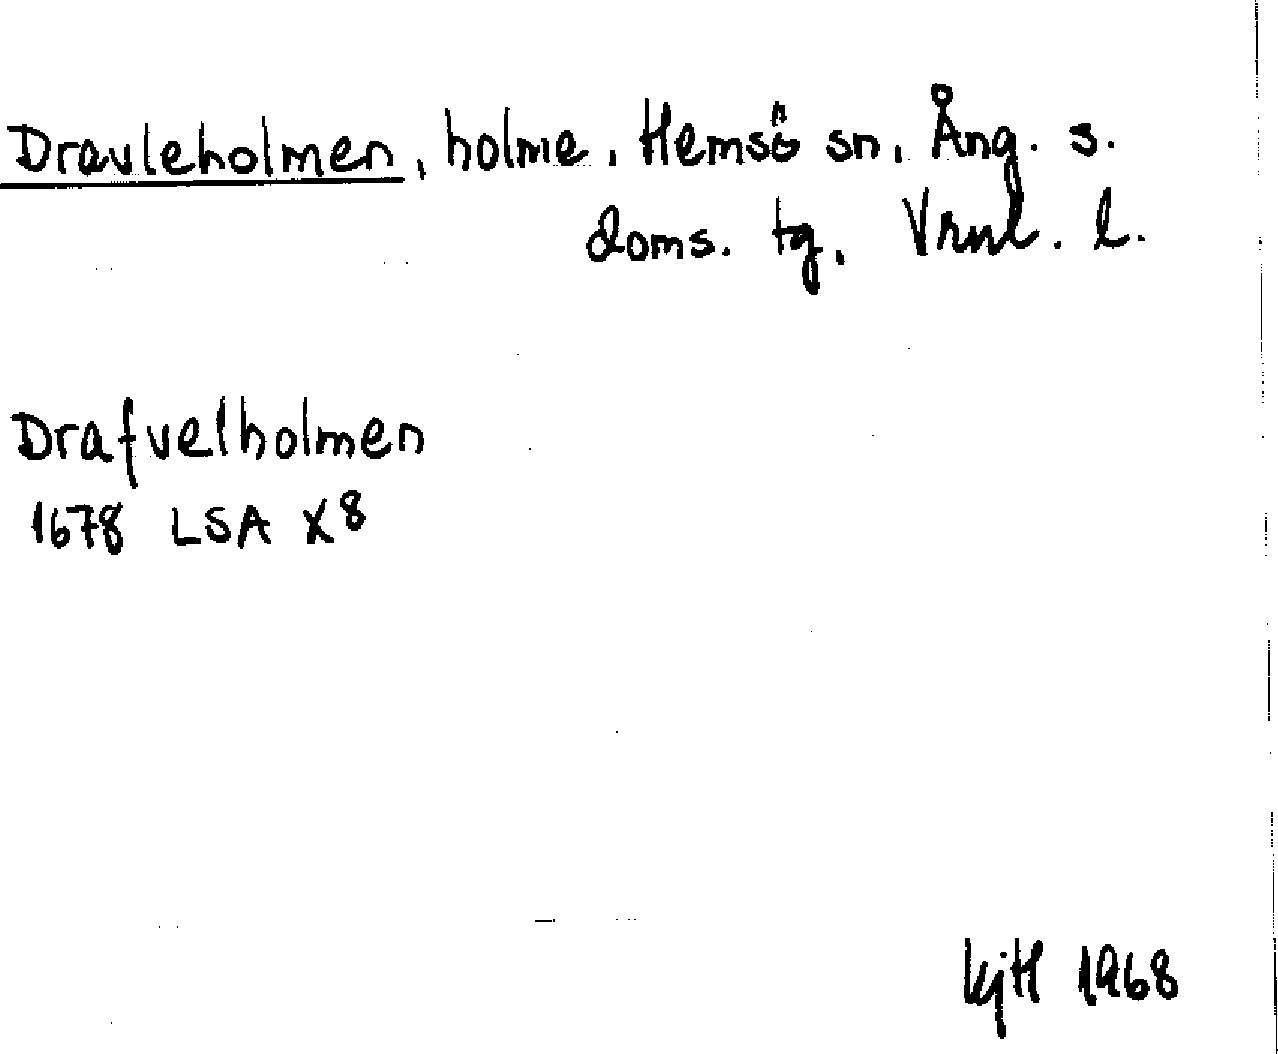 Dravleholmen, holme, Hemsö sn, Ång. s.
doms. tg, Vrnl. l.
Drafvelholmen
1678 LSA X8
KjH 1968